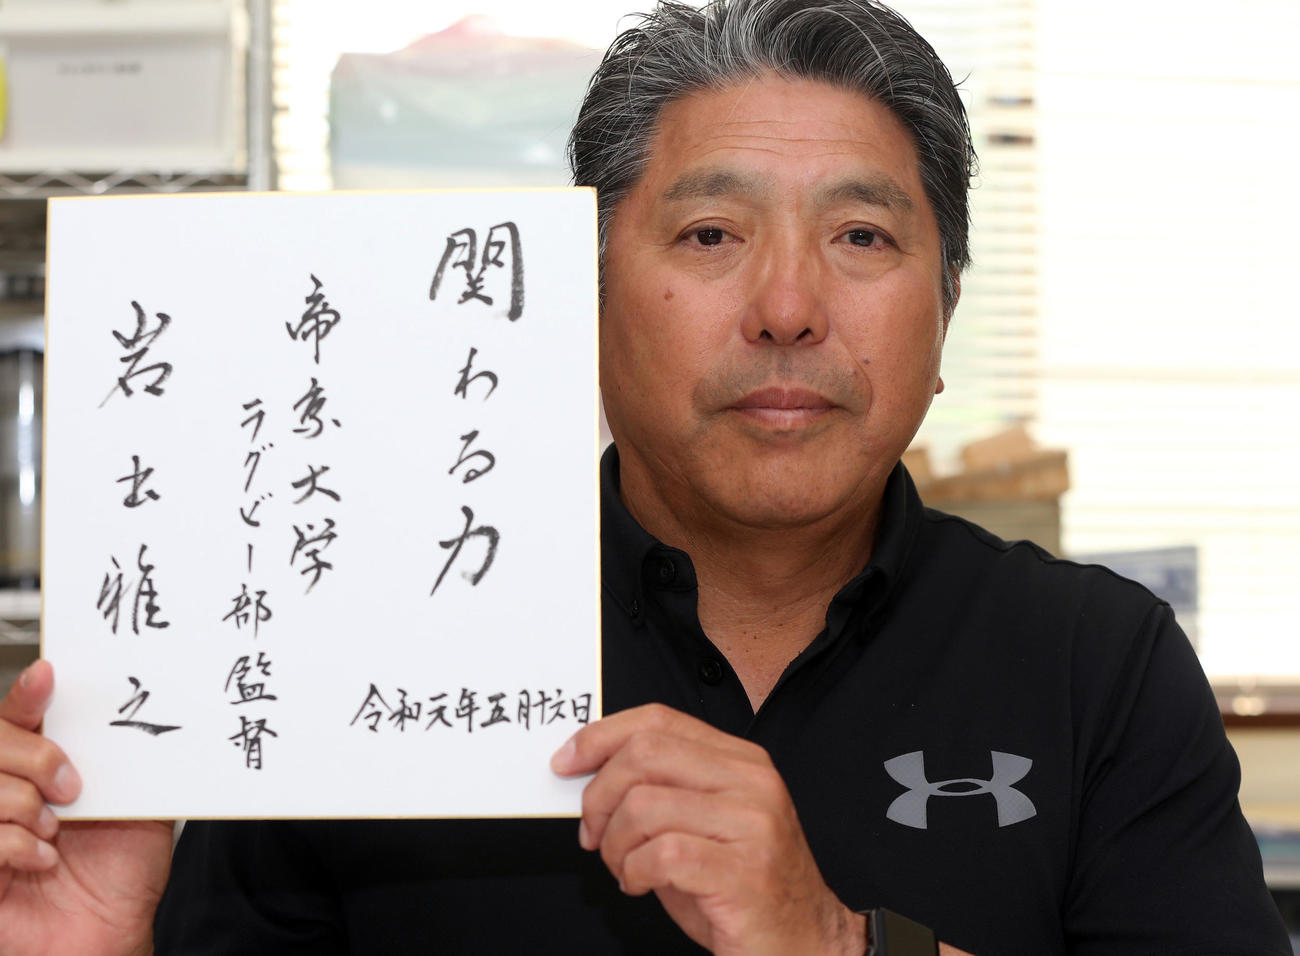 関わる力
帝京大学
ラグビー部監督
岩出雅之
令和元年五月十六日